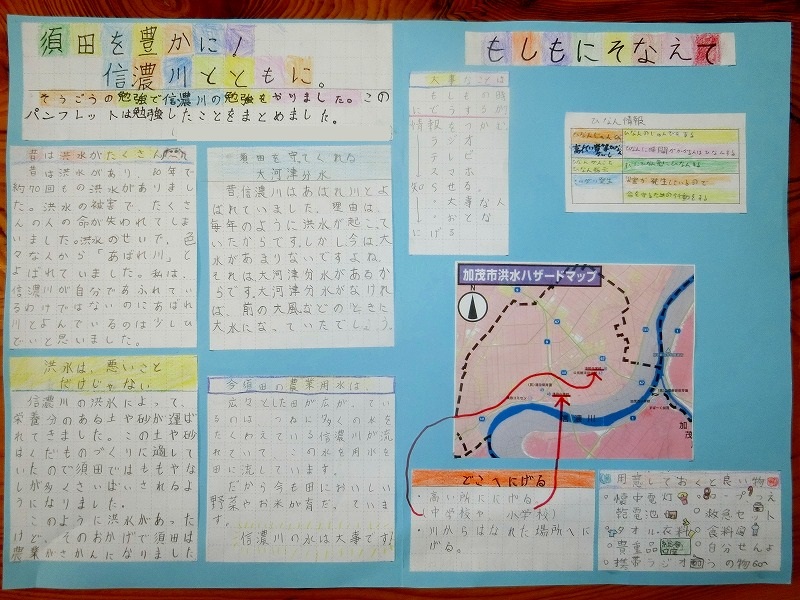 須田を豊かに！
信濃川とともに。
そうごうの勉強で信濃川の勉強をやりました。この
パンフレットは勉強したことをまとめました。
昔は洪水がたくさん
昔は洪水があり、
約70回もの洪水がありまし
た。洪水の被害で、たくさ
んの人の命が失われてしま
いました。洪水のせいで、色
々な人から「あばれ川」と
よばれていました。私は、
信濃川が自分であふれてい
るわけではないのにあばれ
川とよんでいるのは少しひ
どいと思いました。
須田を守ってくれる
大河津分水
昔信濃川はあばれ川とよ
ばれていました。理由は、
毎年のように洪水が起こって
いたからです。しかし今は大
水があまりないですよね。
それは、大河津分水があるか
らです。大河津分水がなけれ
ば、前の大風などのときに
大水になっていたでしょう。
洪水は、悪いこと
だけじゃない
信濃川の洪水によって、
栄養分のある土や砂が運ば
れてきました。この土や砂
はくだものづくりに適して
いたので須田ではももやな
しが多くさいばいされるよ
うになりました。
このように洪水があった
けど、そのおかげで須田は
農業がさかんになりました
今須田の農業用水は、
広々とした田が広がってい
るのは、つねに多くの水を
たくわえている信濃川が流
れていて、この水を用水を
田に流しています。
だから今も田においしい
野菜やお米が育だっていま
す。
信濃川の水は大事です！
もしもにそなえて
大事なことは
もしもの時
にどうするか
情報をつかむ
・ラジオ
・テレビ
・スマホ
知らせる。
・大事な人
・おとな
にげる
ひなん情報
加茂市洪水ハザードマップ
N
川
加
茂
どこへにげる
・高い所ににげる。
(中学校や、小学校)
・川からはなれた場所へに
げる。
用意しておくと良い物
・懐中電灯
乾電池
・救急セット
・タオル・衣料
・食料
・貴重品
・携帯ラジオ